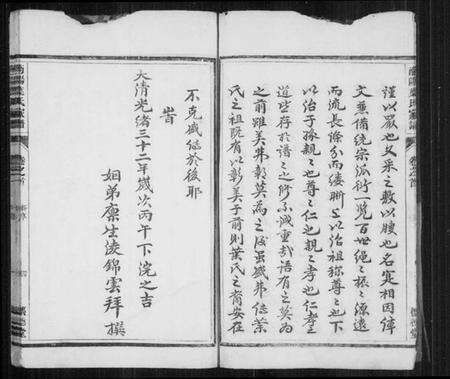 謹以嚴也文采之敷以腴也名寔相因体
文兼備統宗派衍一覧百世繩之振之源遠
而流長條分而縷晰上以治祖祢尊之也下
以治子孫親之也尊之仁也親之孝也仁孝之
道皆存於譜之修不誠重哉語有之莫為
之前雖美弗彰莫為之後雖盛弗傳葉
氏之祖既有以彰美于前則葉氏之裔安在
不克盛傳於後耶
旹
大清光緒三十二年歲次丙午下浣之吉
姻弟廩生淩錦雲拜撰